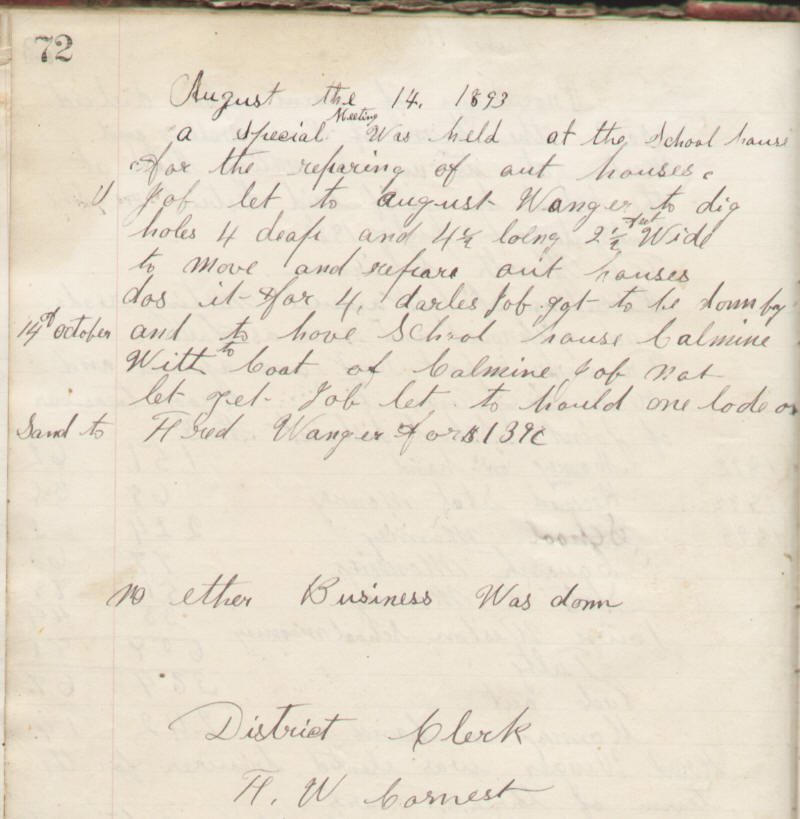 72
August the 14. 1893
a special Meeting Was held at the School house
for the reparing of out houses.
Job let to august Wanger to dig
holes 4 deap and 4½ loeng 2½ feet Wide
to move and repare out houses
dos it for 4. darles Job got to be donn by
14th October and to have School house Calmine
With to Coat of Calmine, Job not
let yet. Job let to hould one lode
Sand to Fred Wanger for $139c
no other Business Was donn
District Clerk
H. W